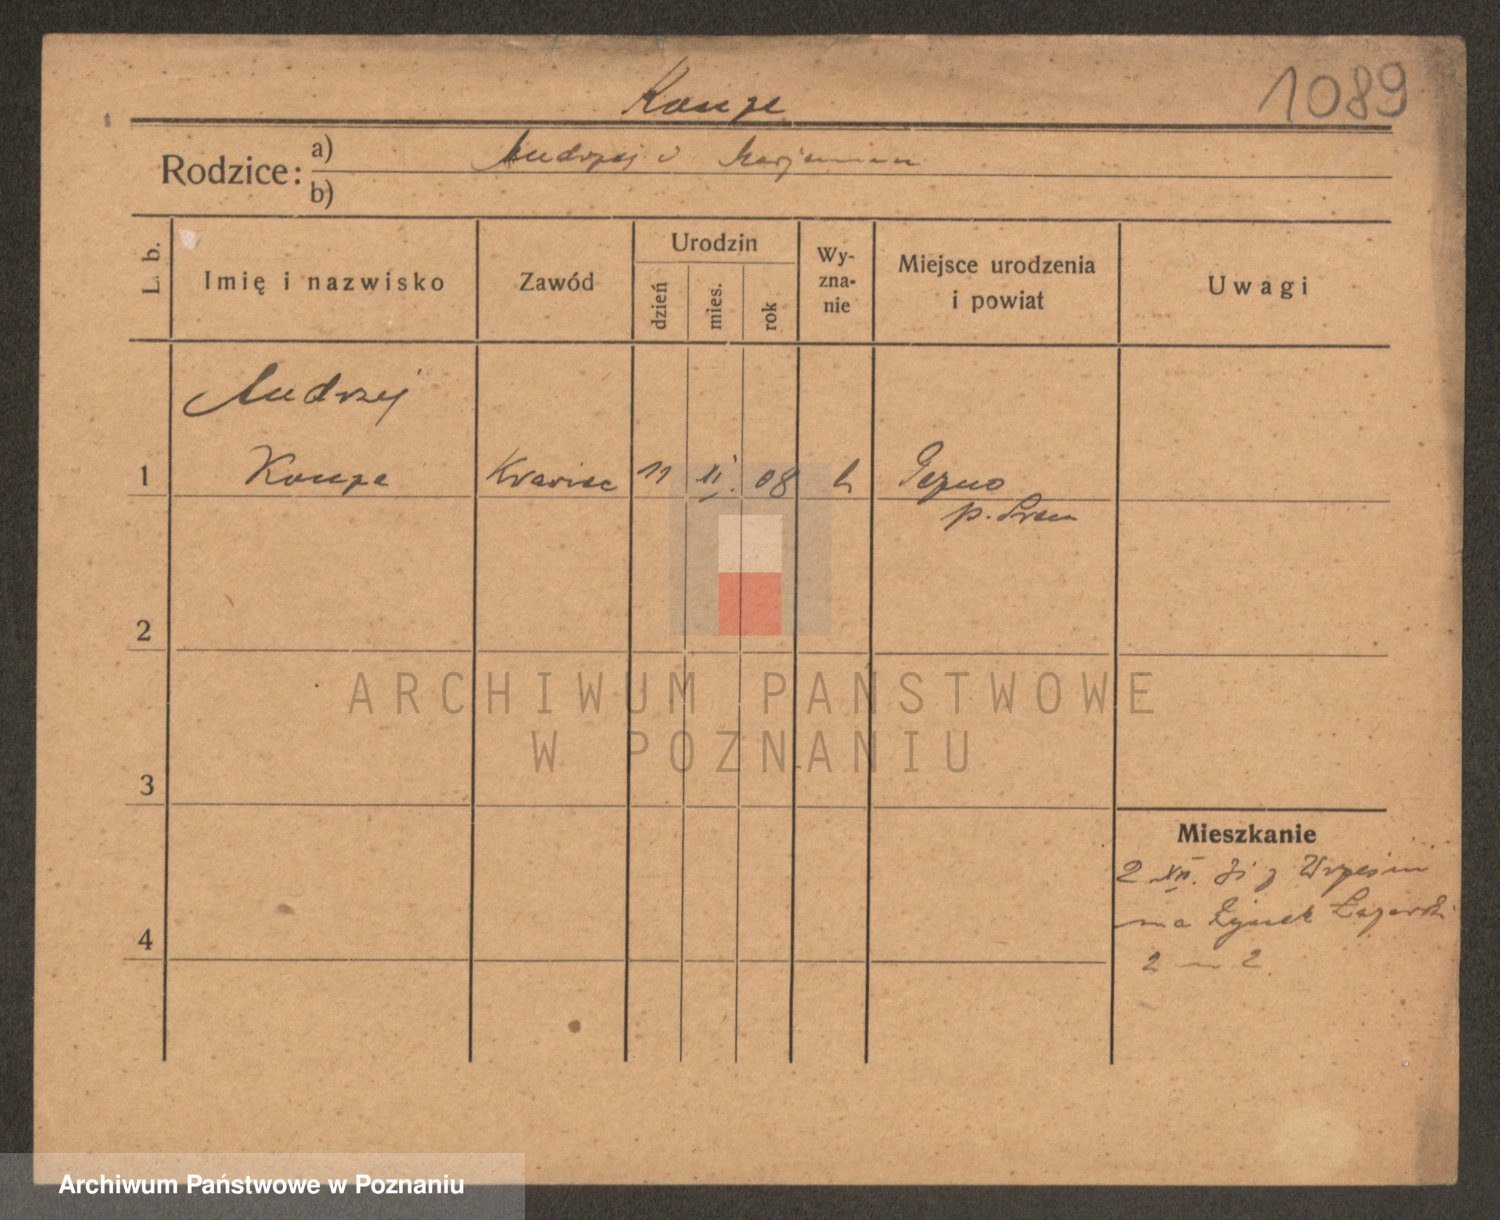 1089
Konze
Rodzice: a) Andrzej i Marjanna
b)
L. b.
Imię i nazwisko
Zawód
Urodzin
dzień
mies.
rok
Wy-
zna-
nie
Miejsce urodzenia
i powiat
Uwagi
Andrzej
1 Konze Krawiec 11 XI. 08
p. Śrem
2
3
4
Mieszkanie
2 XII. z Wrześni
na Rynek Łazarski
2 m 2
ARCHIWUM PAŃSTWOWE
W POZNANIU
Archiwum Państwowe w Poznaniu